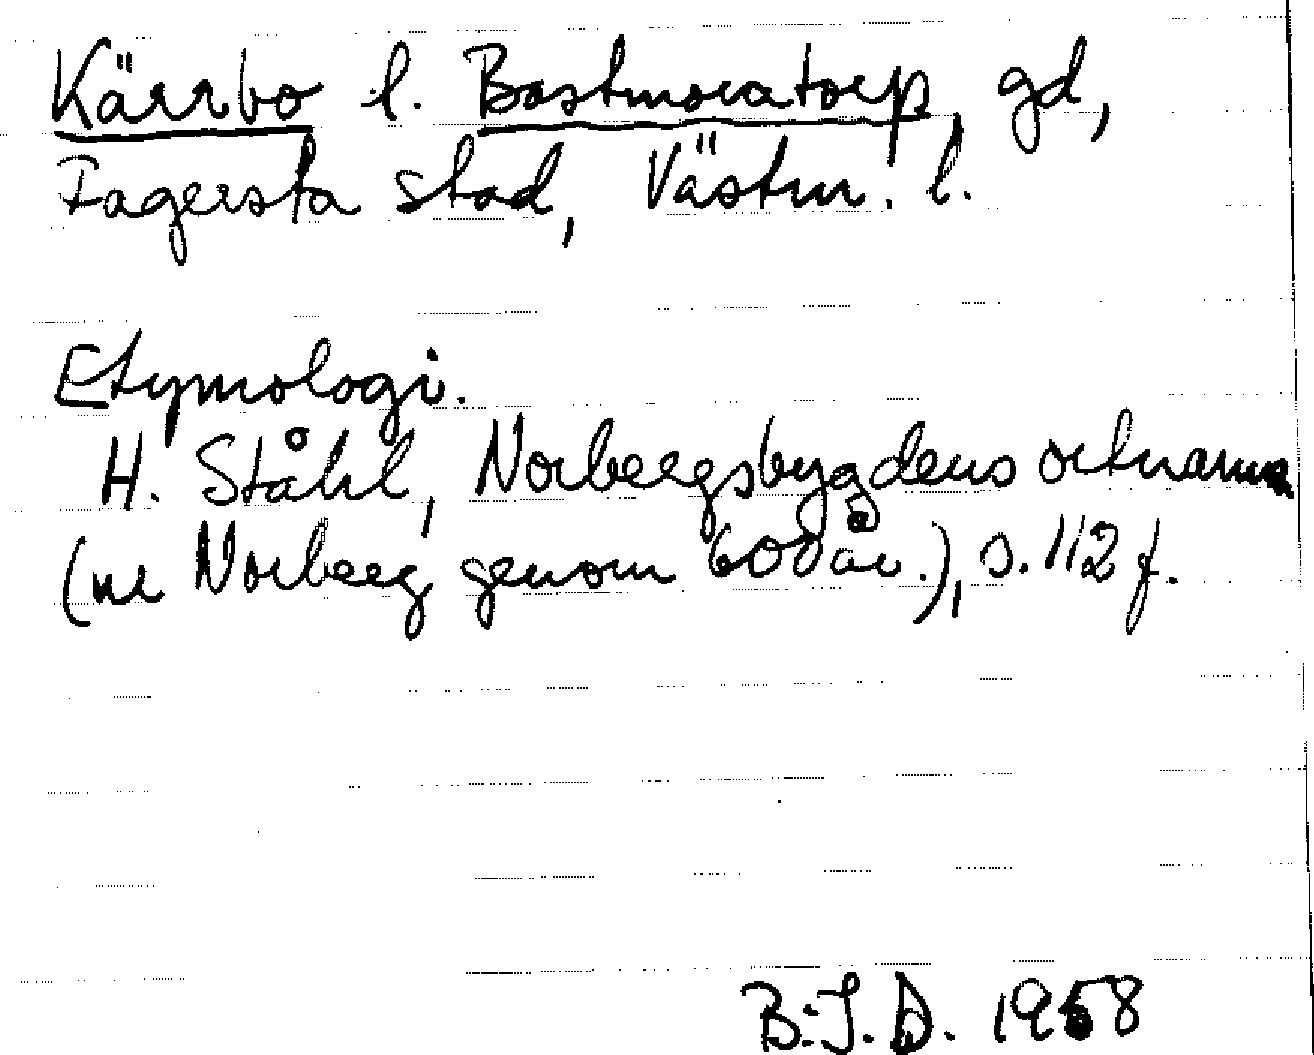 Kärrbo l. Bastmoratorp, gd,
Fagersta stad, Västm. l.
Etymologi.
H. Ståhl, Norbergsbygdens ortnamn
(ur Norberg genom 600 år.), s. 112 f.
B:J.D. 1958